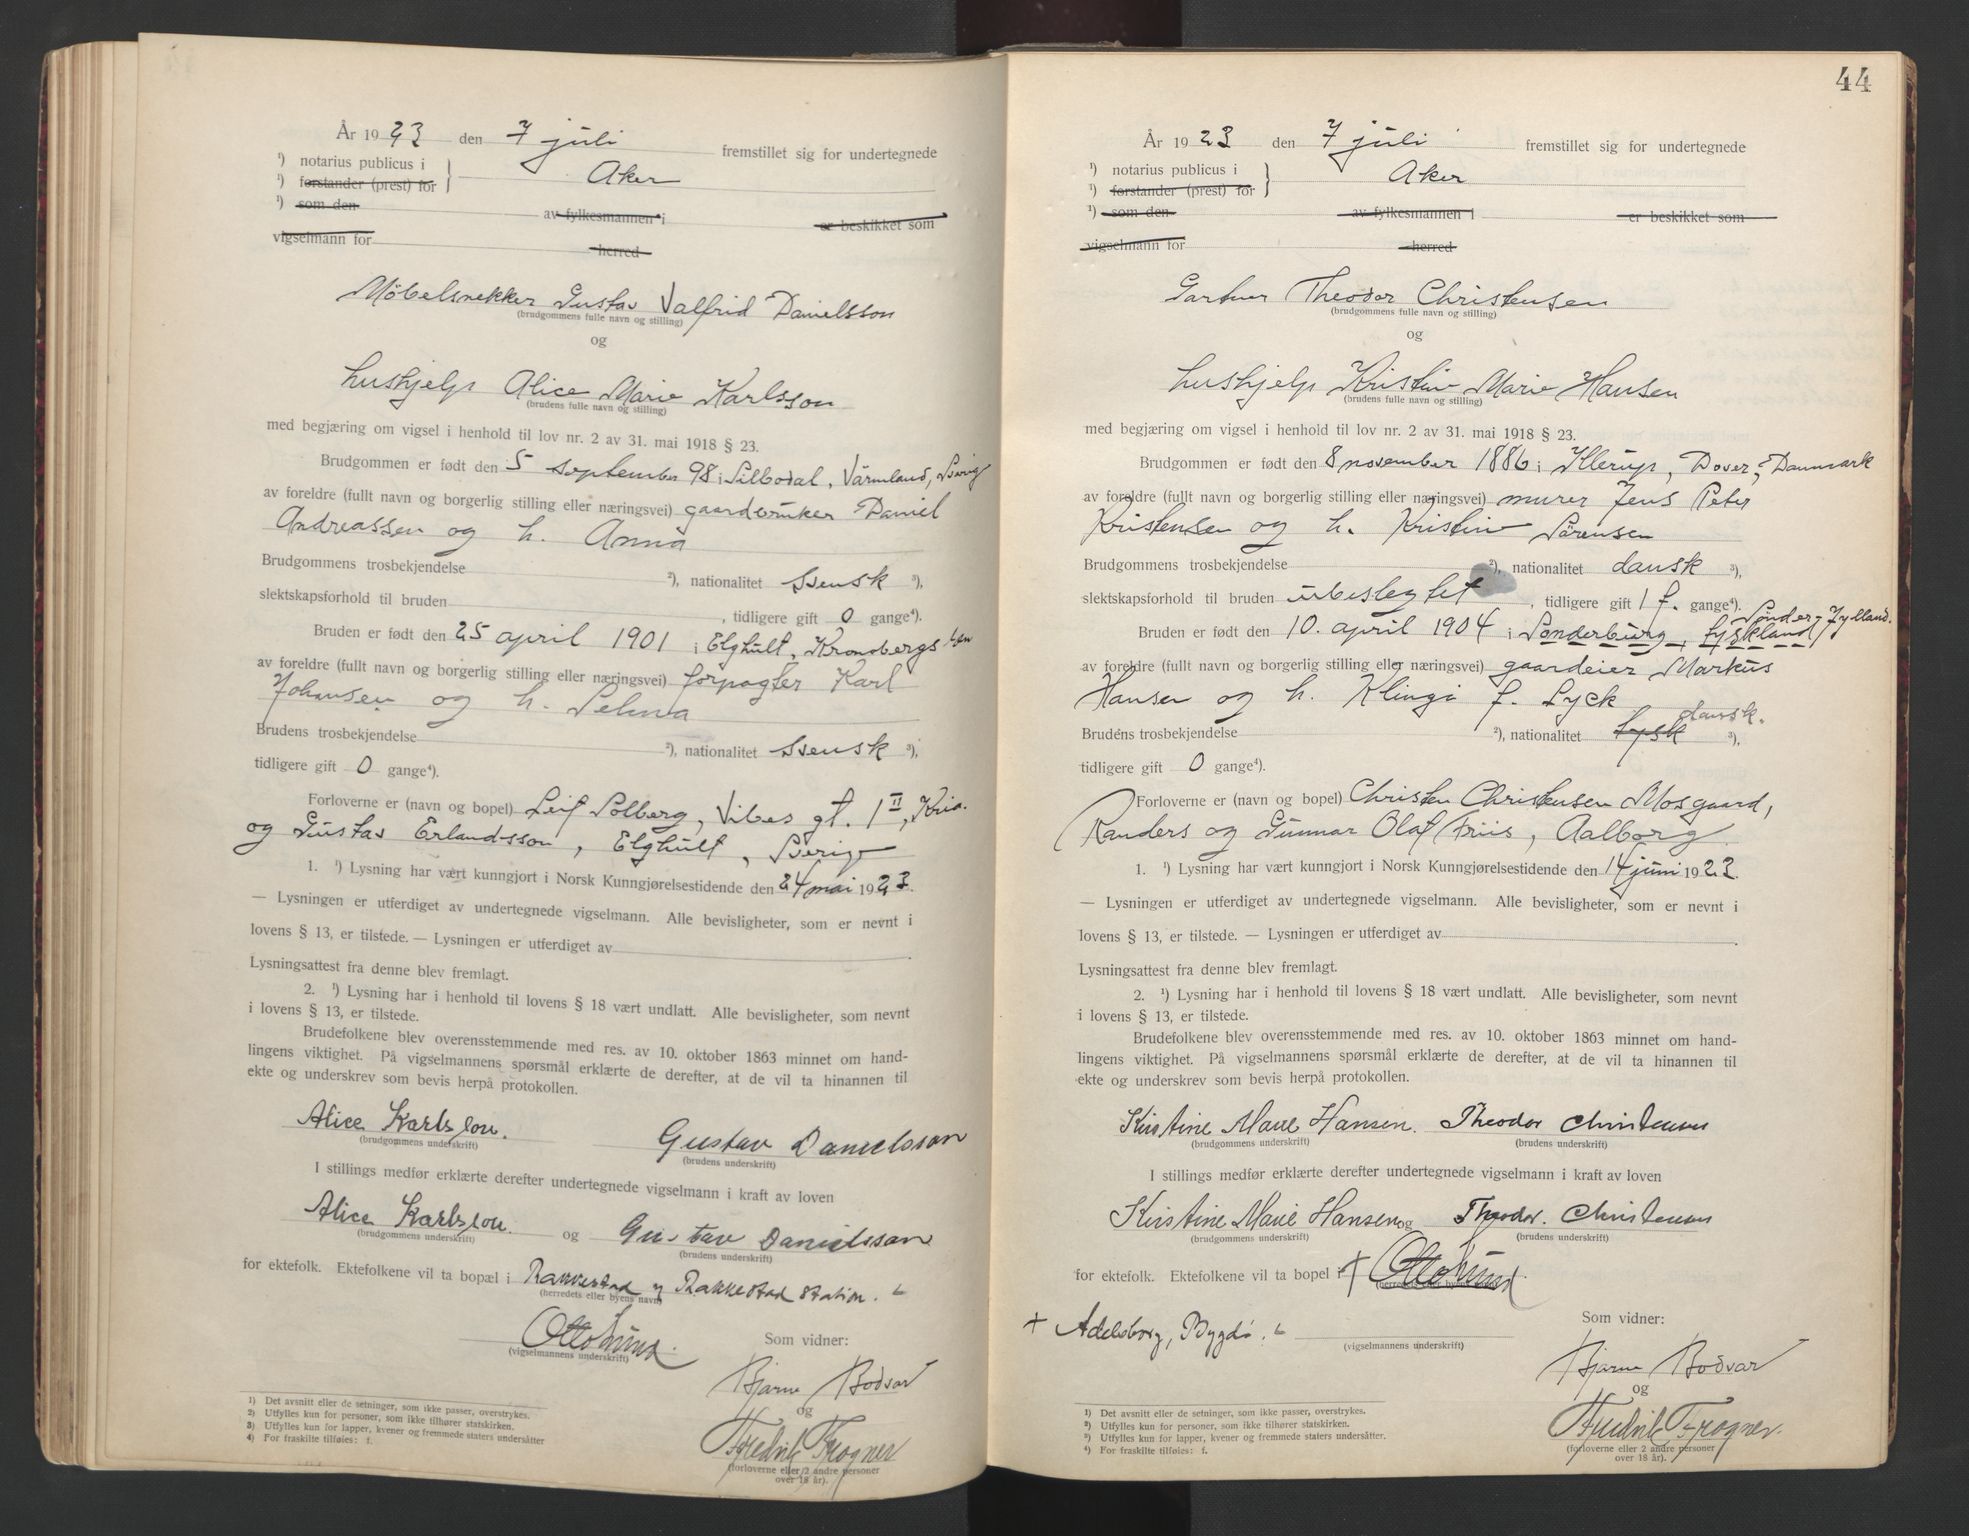 År 1923 den 7 juli fremstillet sig for undertegnede
¹) notarius publicus i
¹) forstander (prest) for } Aker
¹) som den av fylkesmannen i er beskikket som
vigselmann for herred
Möbelsnekker Gustav Valfrid Danielsson
(brudgommens fulle navn og stilling)
og
hushjelp Alice Marie Karlsson
(brudens fulle navn og stilling)
med begjæring om vigsel i henhold til lov nr. 2 av 31. mai 1918 § 23.
Brudgommen er født den 5 september 98 i Silbodal, Värmland, Sverig
av foreldre (fullt navn og borgerlig stilling eller næringsvei) gaardbruker Daniel
Andreassen og h. Anna
Brudgommens trosbekjendelse ²), nationalitet svensk ³),
slektskapsforhold til bruden , tidligere gift 0 gange⁴).
Bruden er født den 25 april 1901 i Elghult, Kronobergs len
av foreldre (fullt navn og borgerlig stilling eller næringsvei) forpagter Karl
Johansen og h. Selma
Brudens trosbekjendelse ²), nationalitet svensk ³),
tidligere gift 0 gange⁴).
Forloverne er (navn og bopel) Leif Solberg, Vibes gt. 1 II, Kria.
og Gustav Erlandsson, Elghult, Sverige
1. ¹) Lysning har vært kunngjort i Norsk Kunngjørelsestidende den 24 mai 1923.
— Lysningen er utferdiget av undertegnede vigselmann. Alle bevisligheter, som er nevnt i
lovens § 13, er tilstede. — Lysningen er utferdiget av .
Lysningsattest fra denne blev fremlagt.
2. ¹) Lysning har i henhold til lovens § 18 vært undlatt. Alle bevisligheter, som nevnt
i lovens § 13, er tilstede.
Brudefolkene blev overensstemmende med res. av 10. oktober 1863 minnet om hand-
lingens viktighet. På vigselmannens spørsmål erklærte de derefter, at de vil ta hinannen til
ekte og underskrev som bevis herpå protokollen.
Alice Karlsson. Gustav Danielsson
(brudgommens underskrift) (brudens underskrift)
I stillings medfør erklærte derefter undertegnede vigselmann i kraft av loven
Alice Karlsson. og Gustav Danielsson
(brudgommens underskrift) (brudens underskrift)
for ektefolk. Ektefolkene vil ta bopæl i Rakkestad, Rakkestad station.
(herredets eller byens navn)
Otto Lund. Som vidner:
(vigselmannens underskrift)
Bjarne Bodvar
og
Fredrik Frogner
(forloverne eller 2 andre personer
over 18 år).
1) Det avsnitt eller de setninger, som ikke passer, overstrykes.
2) Utfylles kun for personer, som ikke tilhører statskirken.
3) Utfylles kun for lapper, kvener og fremmede staters undersåtter
4) For fraskilte tilføies: f.
44
År 1923 den 7 juli fremstillet sig for undertegnede
¹) notarius publicus i
¹) forstander (prest) for } Aker
¹) som den av fylkesmannen i er beskikket som
vigselmann for herred
Gartner Theodor Christensen
(brudgommens fulle navn og stilling)
og
hushjelp Kristine Marie Hansen
(brudens fulle navn og stilling)
med begjæring om vigsel i henhold til lov nr. 2 av 31. mai 1918 § 23.
Brudgommen er født den 8 november 1886 i Illerup, Dover, Danmark
av foreldre (fullt navn og borgerlig stilling eller næringsvei) murer Jens Peter
Kristensen og h. Kristine Sørensen
Brudgommens trosbekjendelse ²), nationalitet dansk ³),
slektskapsforhold til bruden ubeslegtet , tidligere gift 1 f. gange⁴).
Sönder-Jylland.
Bruden er født den 10. april 1904 i Sønderburg, tyskland
av foreldre (fullt navn og borgerlig stilling eller næringsvei) gaardeier Markus
Hansen og h. Klingi f. Lyck
dansk.
Brudens trosbekjendelse ²), nationalitet tysk ³),
tidligere gift 0 gange⁴).
Forloverne er (navn og bopel) Christen Christensen Mosgaard,
Randers og Gunnar Olaf Friis, Aalborg
1. ¹) Lysning har vært kunngjort i Norsk Kunngjørelsestidende den 14 juni 1923.
— Lysningen er utferdiget av undertegnede vigselmann. Alle bevisligheter, som er nevnt i
lovens § 13, er tilstede. — Lysningen er utferdiget av .
Lysningsattest fra denne blev fremlagt.
2. ¹) Lysning har i henhold til lovens § 18 vært undlatt. Alle bevisligheter, som nevnt
i lovens § 13, er tilstede.
Brudefolkene blev overensstemmende med res. av 10. oktober 1863 minnet om hand-
lingens viktighet. På vigselmannens spørsmål erklærte de derefter, at de vil ta hinannen til
ekte og underskrev som bevis herpå protokollen.
Kirstine Marie Hansen. Theodor Christensen
(brudgommens underskrift) (brudens underskrift)
I stillings medfør erklærte derefter undertegnede vigselmann i kraft av loven
Kirstine Marie Hansen og Theodor. Christensen
(brudgommens underskrift) (brudens underskrift)
for ektefolk. Ektefolkene vil ta bopel i + Otto Lund
(herredets eller byens navn)
Som vidner:
+ Adelsborg, Bygdø.
(vigselmannens underskrift)
Bjarne Bodvar
og
Fredrik Frogner.
(forloverne eller 2 andre personer
over 18 år).
1) Det avsnitt eller de setninger, som ikke passer, overstrykes.
2) Utfylles kun for personer, som ikke tilhører statskirken.
3) Utfylles kun for lapper, kvener og fremmede staters undersåtter.
4) For fraskilte tilføies: f.